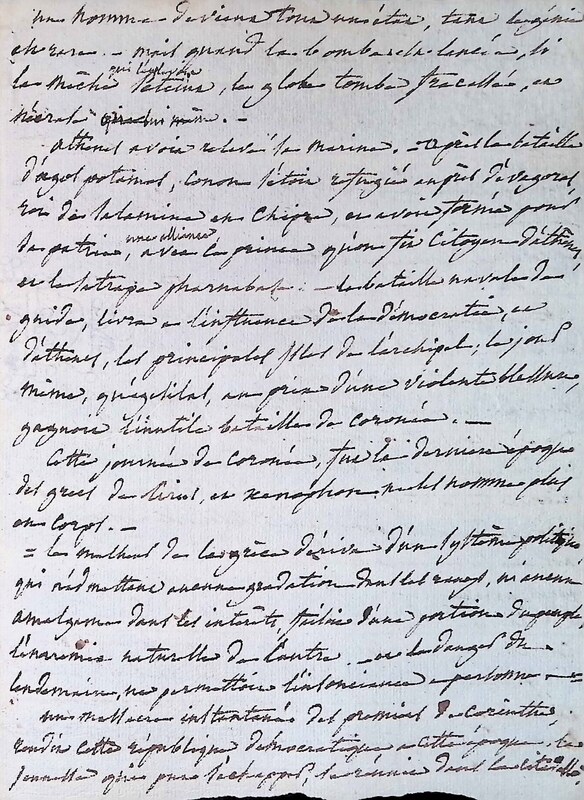 un homme devient tout un état, tant le génie
est rare. - mais quand la bombe est lancée, si
la mêche qui l'explode s'éteint, le globe tombe fracassé, et
n'écrase que lui même. -
athenes avoit relevé sa marine. - après la bataille
d'agos potamos, conon s'étoit refugié auprès d'évagoras,
roi de salamine en chipre, et avoit formé pour
sa patrie, une alliance avec le prince qu'on fit citoyen d'athènes,
et le satrape pharnabase. - la bataille navale de
gnide, livra a l'influence de la démocratie, et
d'athenes, les principales isles de l'archipel; le jour
même, qu'agésilas, au prix d'une violente blessure,
gagnoit l'inutile bataille de coronée. -
Cette journée de coronée, fut la derniere époque
des grecs de Cirus, et xenophon ne les nomme plus
en corps. -
= le malheur de la grèce dérive d'un système politique
qui n'admettant aucune gradation dans les rangs, ni aucun
amalgame dans les intérêts, faisoit d'une portion du peuple
l'énnemie naturelle de l'autre - et le danger du
lendemain, ne permettoit l'insouciance a personne. =
un massacre instantané des premiers de corinthe,
rendit cette république démocratique a cette époque. la
jeunesse qui put s'échapper, se réunit dans la citadelle